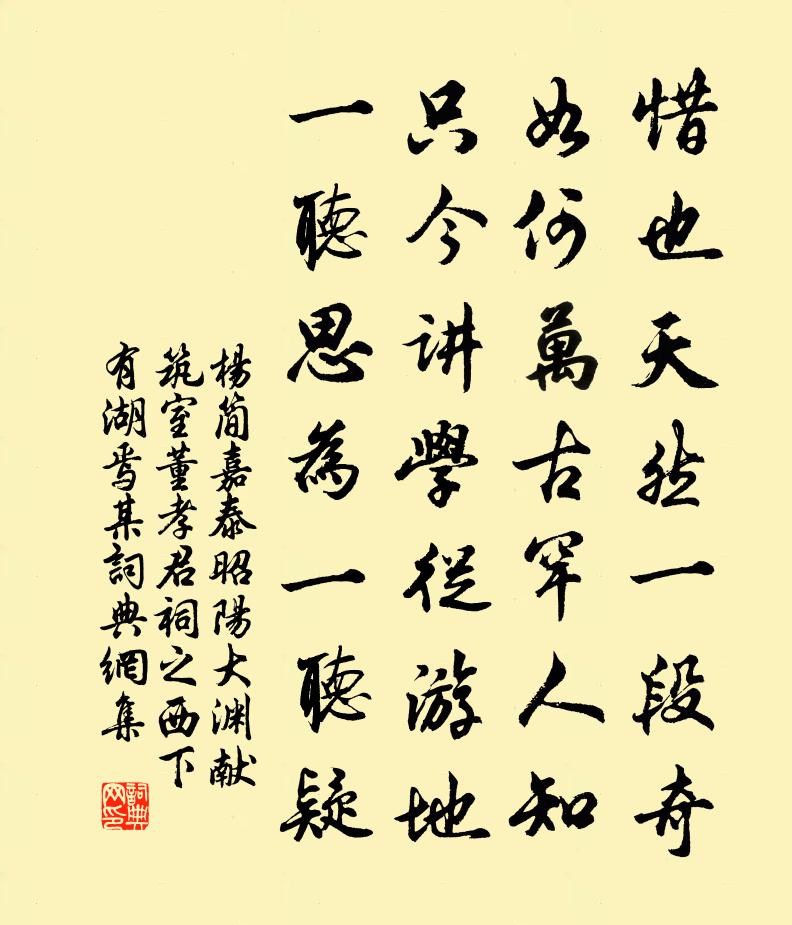 惜也天然一段奇
如何萬古罕人知
只今讲學從游地
一聽思為一聽疑
楊简嘉泰昭陽大渊献
筑室董孝君祠之西下
有湖焉某詞典網集
詞典网印